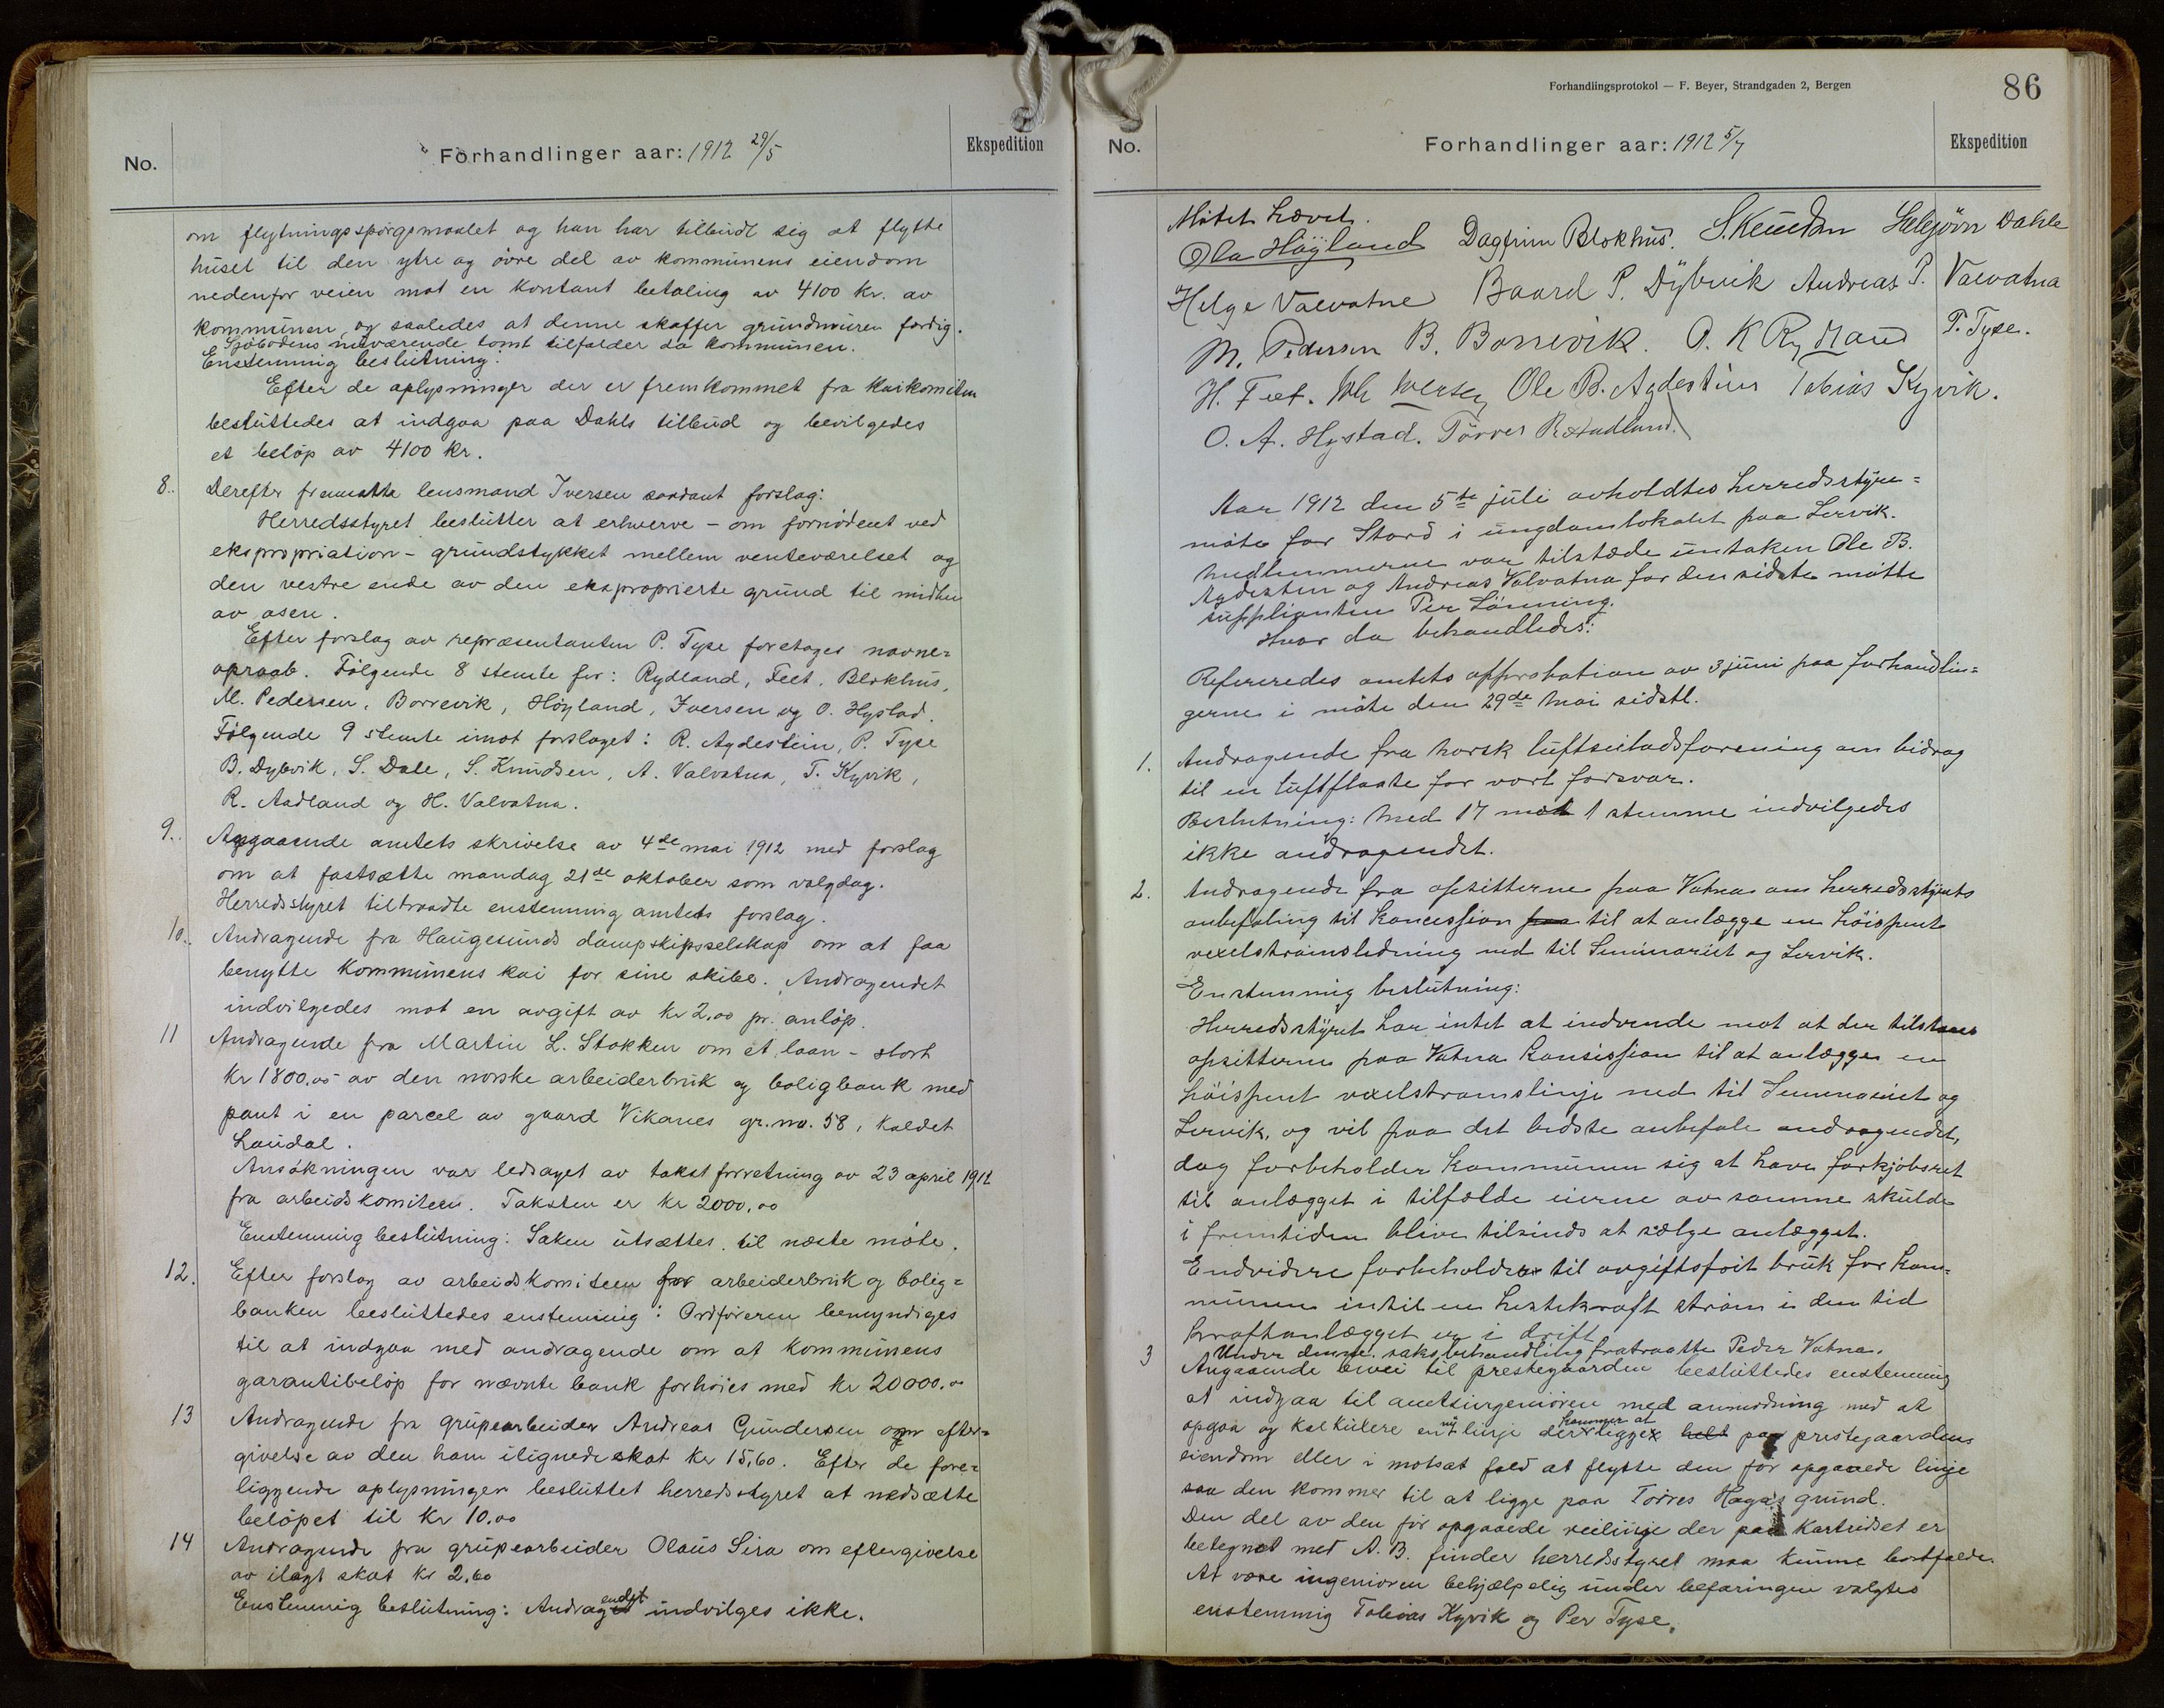 No.
Forhandlinger aar: 1912 29/5
Ekspedition
om flytningsspørgsmaalet og han har tilbudt sig at flytte
huset til den ytre og øvre del av kommunens eiendom
nedenfor veien mot en kontant betaling av 4100 kr. av
kommunen, og saaledes at denne skaffer grundmuren færdig.
Sjøbodens nuværende tomt tilfalder da kommunen.
Enstemmig beslutning:
Efter de oplysninger der er fremkommet fra kaikomiteen
besluttedes at indgaa paa Dahls tilbud og bevilgedes
et beløp av 4100 kr.
8. Derefter fremsatte lensmand Iversen saadant forslag:
Herredsstyret beslutter at erhverve - om fornødent ved
ekspropriation - grundstykket mellem venteværelset og
den vestre ende av den eksproprierte grund til midten
av osen.
Efter forslag av repræsentanten P. Tyse foretages navne=
opraab. Følgende 8 stemte for: Rydland, Feet, Blokhus,
M. Pedersen, Borrevik, Höyland, Iversen og O. Hystad.
Følgende 9 stemte imot forslaget: R. Agdestein, P. Tyse
B. Dybvik, S. Dale, S. Knudsen, A. Valvatna, T. Kyvik,
R. Aadland og H. Valvatna.
9. Angaaende amtets skrivelse av 4de mai 1912 med forslag
om at fastsætte mandag 21de oktober som valgdag.
Herredsstyret tiltraadte enstemmig amtets forslag.
10. Andragende fra Haugesunds dampskipsselskap om at faa
benytte kommunens kai for sine skibe. Andragendet
indvilgedes mot en avgift av kr 2.00 pr. anløp.
11 Andragende fra Martin L. Stokken om et laan - stort
kr 1800.00 av den norske arbeiderbruk og boligbank med
pant i en parcel av gaard Vikanes gr. no. 58, kaldet
Laudal.
Ansøkningen var ledsaget av takstforretning av 23 april 1912
fra arbeidskomiteen. Taksten er kr 2000.00
Enstemmig beslutning: Saken utsættes til næste møte.
12. Efter forslag av arbeidskomiteen for arbeiderbruk og bolig=
banken besluttedes enstemmig: Ordføreren bemyndiges
til at indgaa med andragende om at kommunens
garantibeløp for nævnte bank forhøies med kr 20000.00
13 Andragende fra grupearbeider Andreas Gundersen om efter=
givelse av den ham ilignede skat kr 15,60. Efter de fore=
liggende oplysninger besluttet herredsstyret at nedsætte
beløpet til kr 10.00
14 Andragende fra grupearbeider Olaus Sira om eftergivelse
av ilagt skat kr 2.60
Enstemmig beslutning: Andragendet indvilges ikke.
Forhandlingsprotokol — F. Beyer, Strandgaden 2, Bergen
86
No.
Forhandlinger aar: 1912 5/7
Ekspedition
Møtet hævet.
Ola Höyland Dagfinn Blokhus. S. Knudsen Halgjörn Dahle
Helge Valvatne Baard P. Dÿbvik Andreas P. Valvatna
M. Pedersen B. Borrevik. O. K Rydland P. Tyse.
H. Feet. Iversen Ole B. Agdestein Tobias Kyvik.
O. A. Hystad. Tørres R. Aadland.
Aar 1912 den 5te juli avholdtes herredsstyre=
møte for Stord i ungdomslokalet paa Lervik.
Medlemmerne var tilstæde untaken Ole B.
Agdesten og Andreas Valvatna for den sidste møtte
supplianten Per Lønning.
Hvor da behandledes:
Refereredes amtets approbation av 3 juni paa forhandlin=
gerne i møte den 29de mai sidstl.
1. Andragende fra norsk luftseiladsforening om bidrag
til en luftflaate for vort forsvar.
Beslutning: Med 17 mot 1 stemme indvilgedes
ikke andragendet.
2. Andragende fra opsitterne paa Vatna om herredsstyrets
anbefaling til koncession paa til at anlægge en høispent
vexelstrømsledning ned til Seminariet og Lervik.
Enstemmig beslutning:
Herredsstyret har intet at indvende mot at der tilstaaes
opsitterne paa Vatna konsission til at anlægge en
høispent vexelstrømslinje ned til Seminariet og
Lervik, og vil paa det bedste anbefale andragendet,
dog forbeholder kommunen sig at have forkjøbsret
til anlægget i tilfælde eierne av samme skulde
i fremtiden blive tilsinds at sælge anlægget.
Endvidere forbeholdes til avgiftsfrit bruk for kom=
munen intil en hestekraft strøm i den tid
kraftanlægget er i drift
Under denne saksbehandling fratraatte Peder Vatna.
3 Angaaende bivei til prestegaarden besluttedes enstemmig
at indgaa til amtsingeniøren med anmodning med at
opgaa og kalkulere en ny linje der kommer at ligge helt paa prestegaardens
eiendom eller i motsat fald at flytte den før opgaaede linje
saa den kommer til at ligge paa Tørres Hagas grund.
Den del av den før opgaaede veilinje der paa kartridset er
betegnet med A. B. finder herredsstyret maa kunne bortfalde.
At være ingeniøren behjælpelig under befaringen valgtes
enstemmig Tobias Kyvik og Per Tyse.